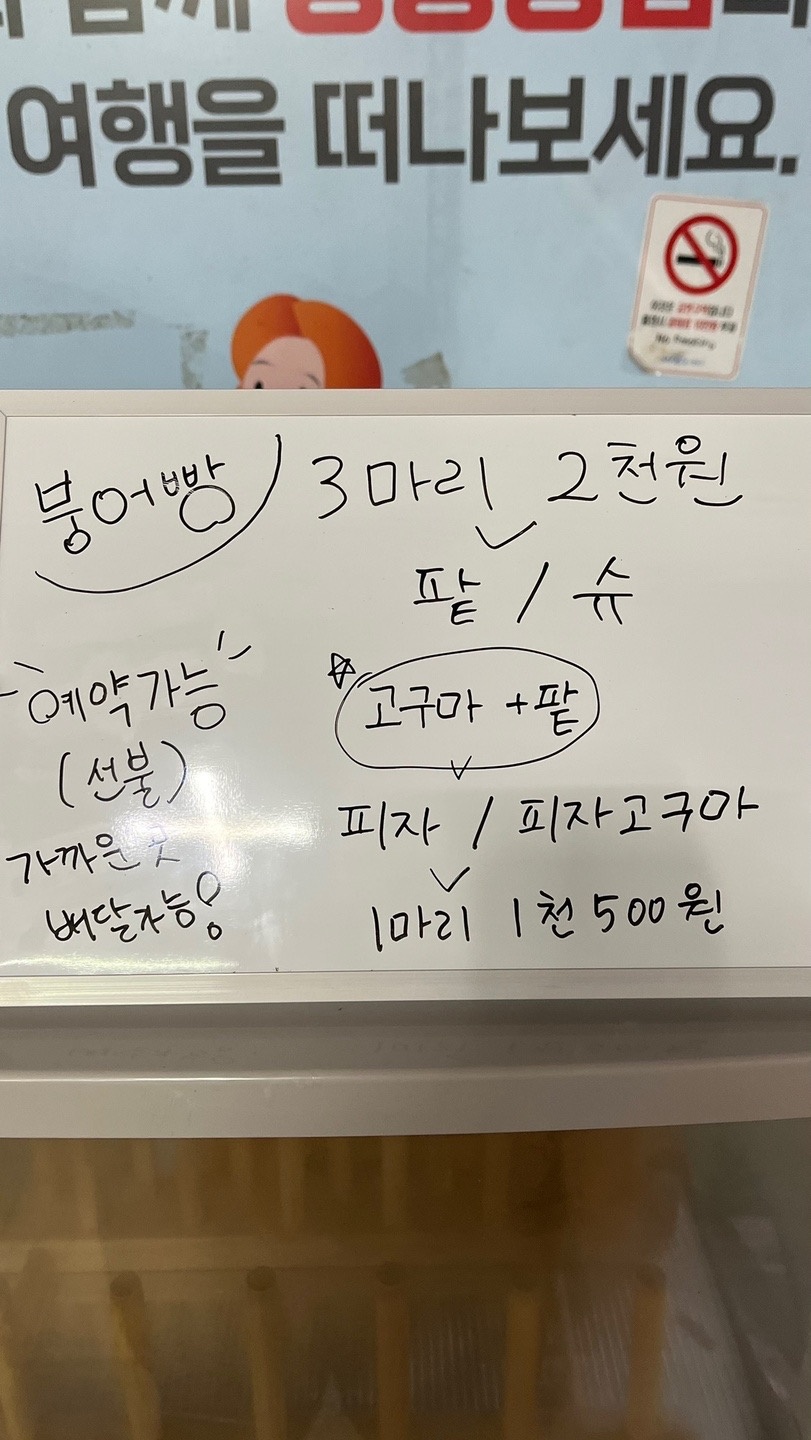 여행을 떠나보세요.
No Smoking
붕어빵
3마리 2천원
팥 / 슈
고구마 + 팥
피자 / 피자고구마
1마리 1천500원
예약가능
(선불)
가까운곳
배달가능!